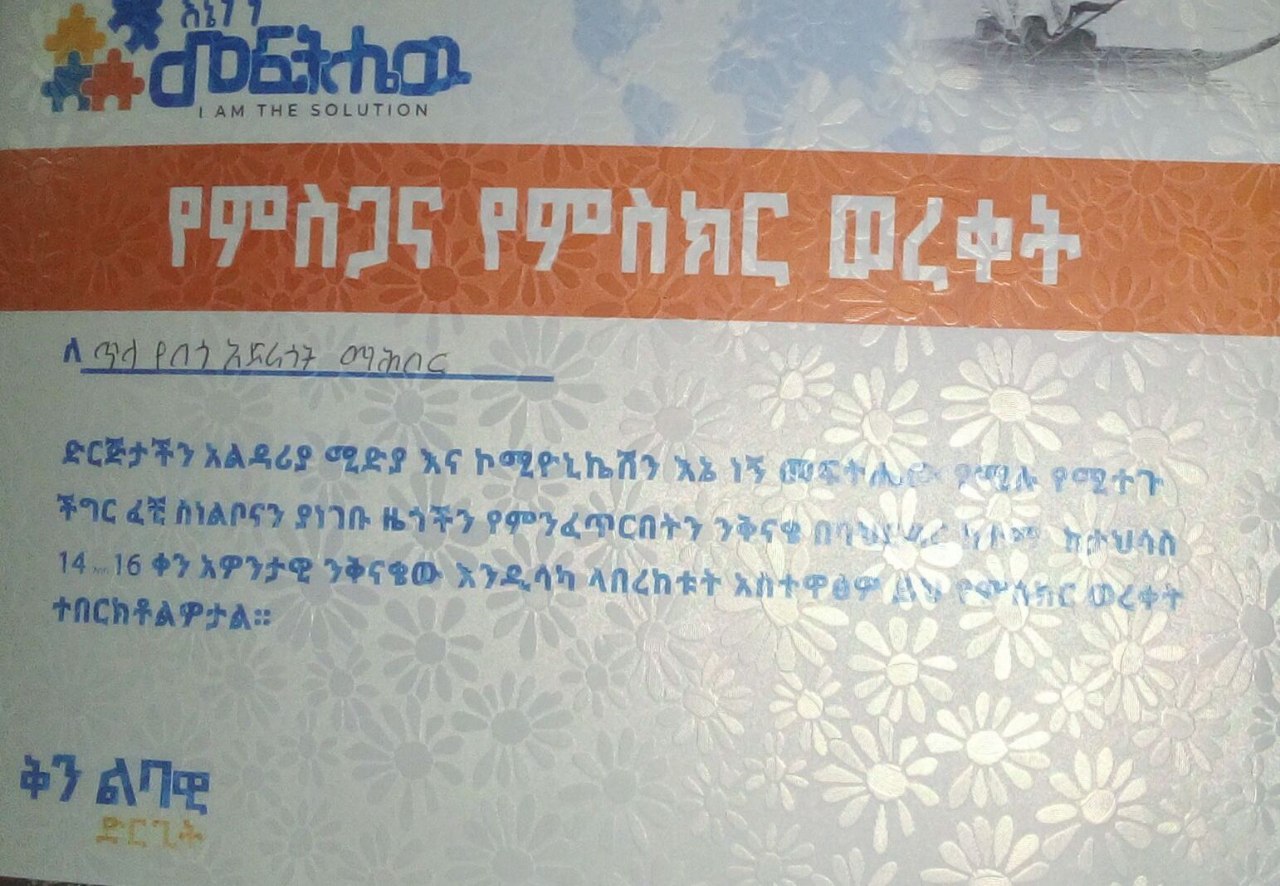 እኔ ነኝ
መፍትሔው
I AM THE SOLUTION
የምስጋና የምስክር ወረቀት
ለ ጥላ የበጎ አድራጎት ማሕበር
ድርጅታችን አልዳሪያ ሚድያ እና ኮሚዮኒኬሽን እኔ ነኝ መፍትሔው የሚሉ የሚተጉ
ችግር ፈቺ ስነልቦናን ያነገቡ ዜጎችን የምንፈጥርበትን ንቅናቄ በባህዳር ከተማ ከታህሳስ
14 - 16 ቀን አዎንታዊ ንቅናቄው እንዲሳካ ላበረከቱት አስተዋፅዎ ይህ የምስክር ወረቀት
ተበርክቶልዎታል።
ቅን ልባዊ
ድርጊት